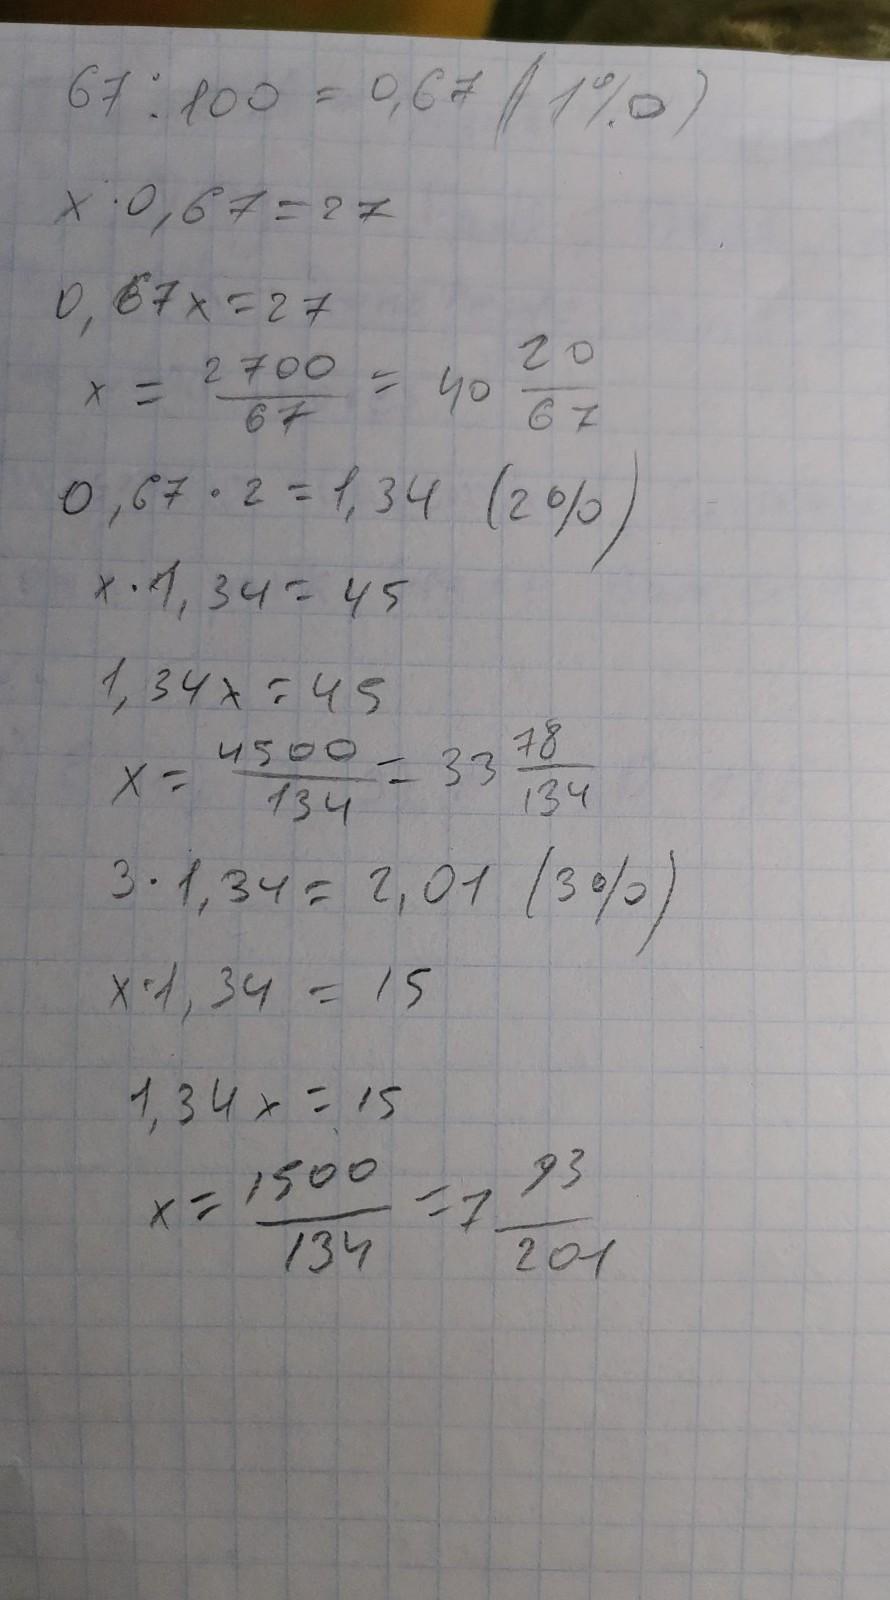 67 : 100 = 0,67 (1%)
x · 0,67 = 27
0,67x = 27
x = 2700/67 = 40 20/67
0,67 · 2 = 1,34 (2%)
x · 1,34 = 45
1,34x = 45
x = 4500/134 = 33 78/134
3 · 1,34 = 2,01 (3%)
x · 1,34 = 15
1,34x = 15
x = 1500/134 = 7 93/201